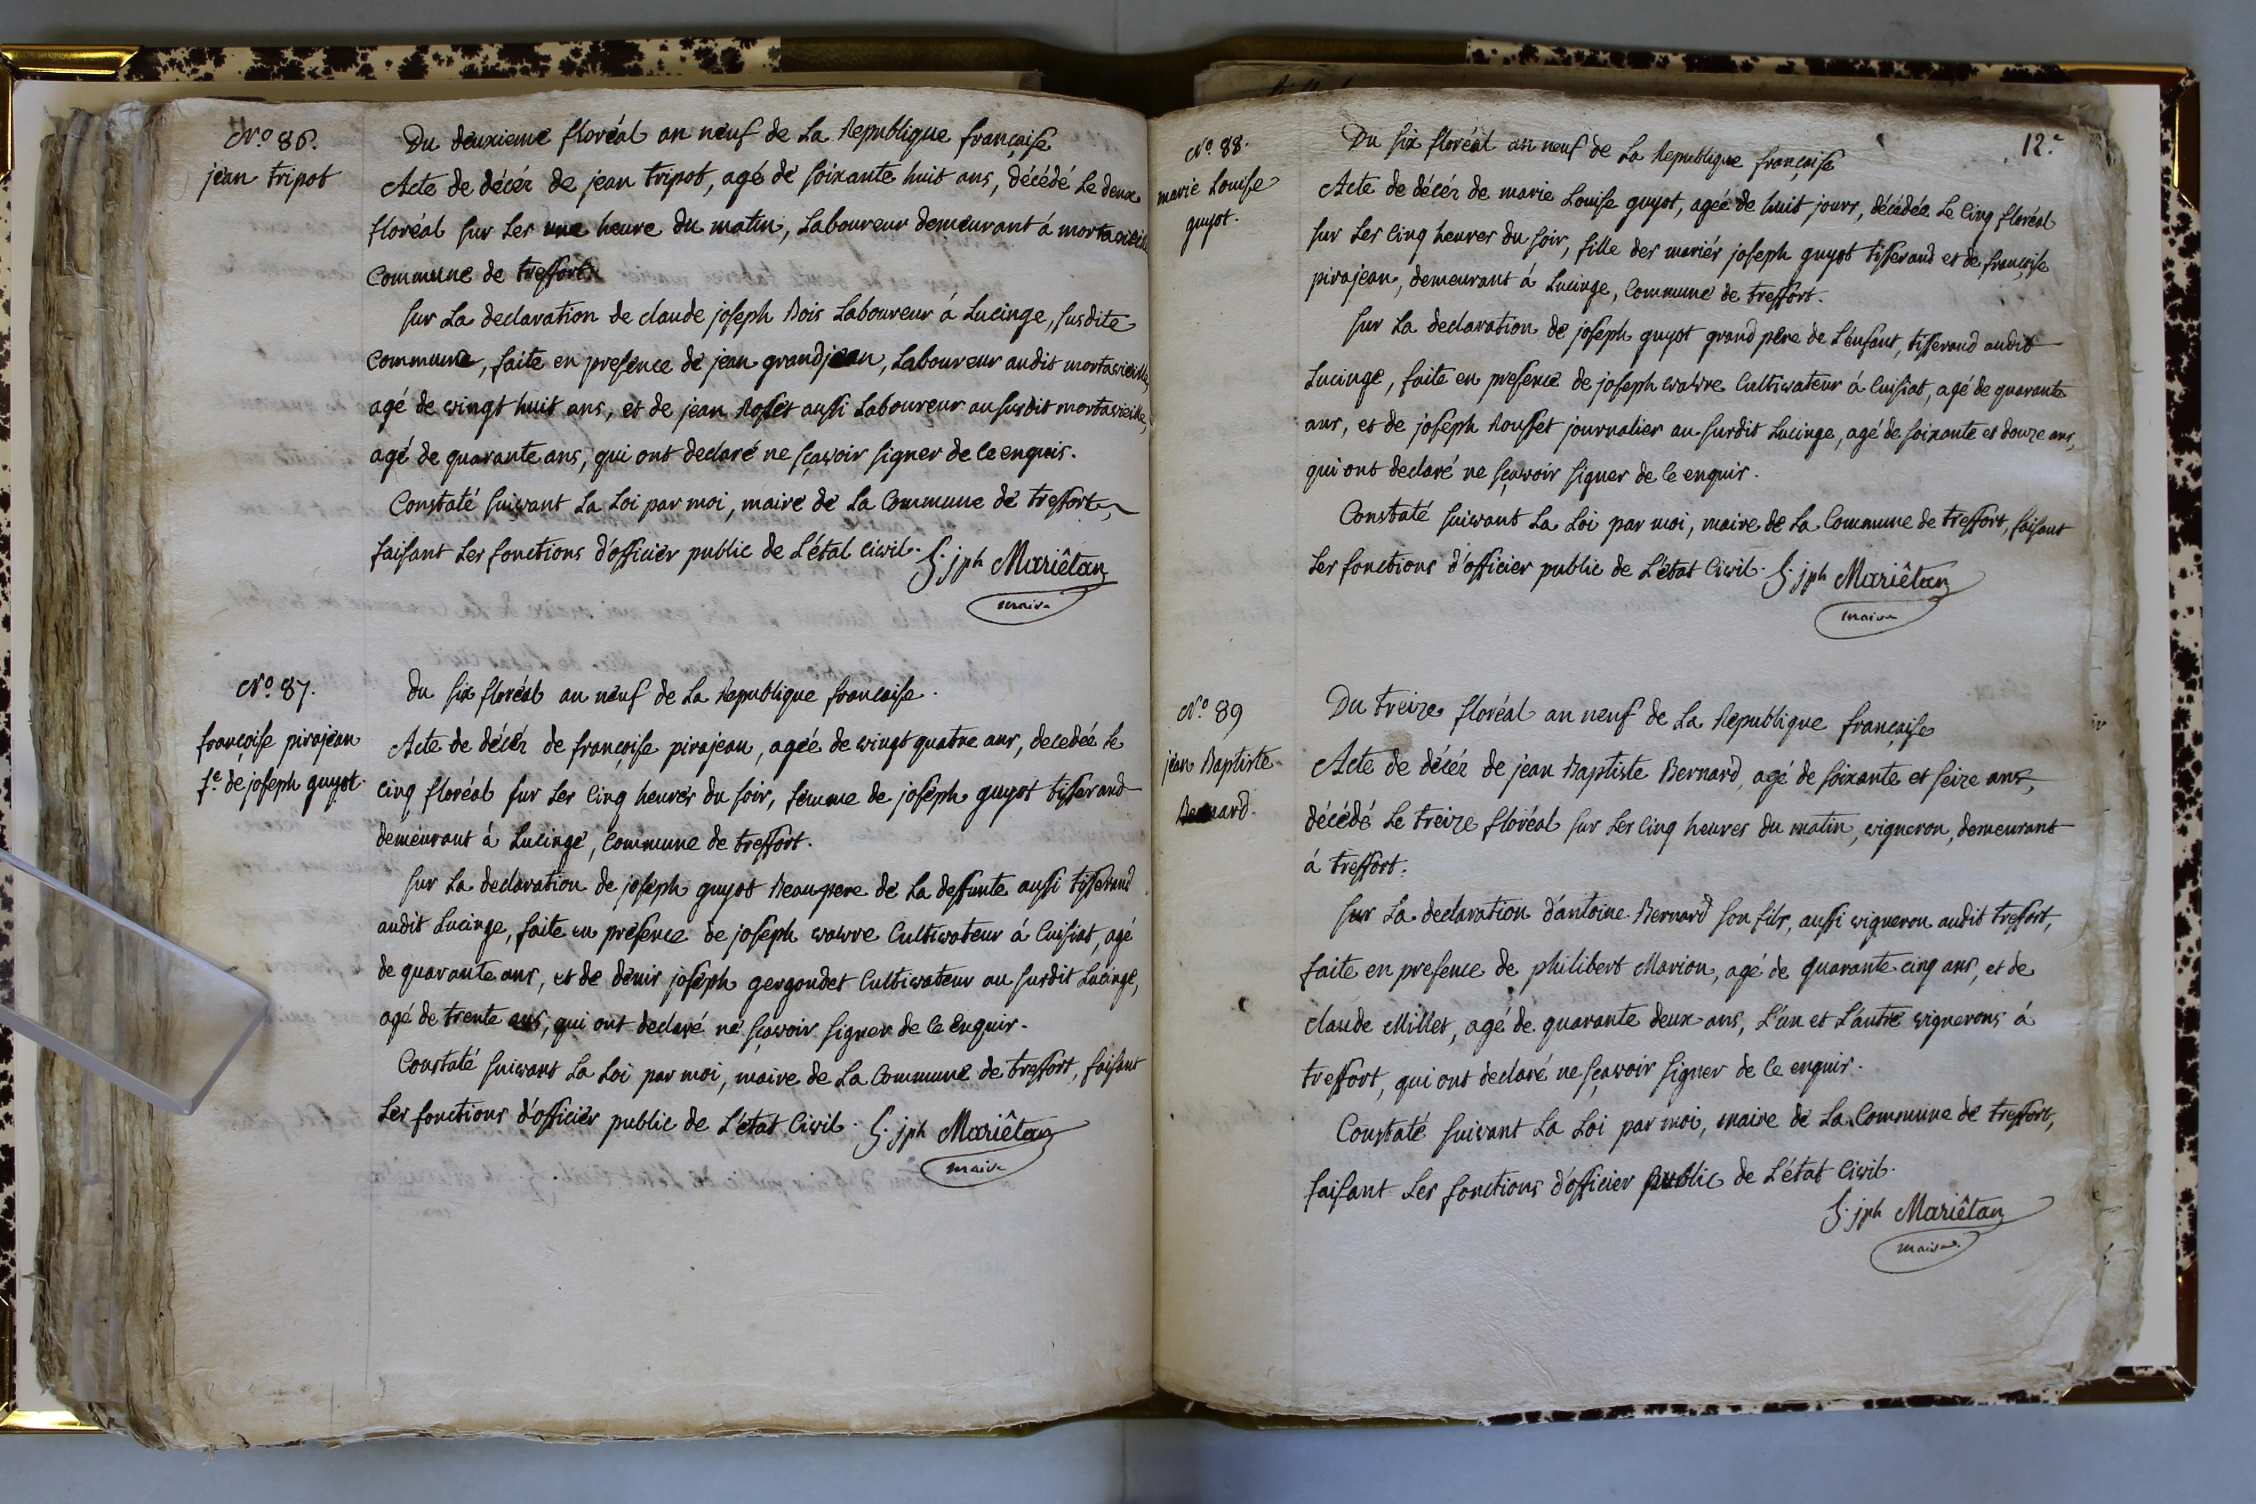 N.o 86.
jean tripot
Du deuxieme floréal an neuf de La Republique françoise
Acte de décéz de jean tripot, agé de soixante huit ans, décédé Le deux
floréal sur Les une heure du matin, Laboureur demeurant á mortavieille
Commune de treffort.
sur La declaration de claude joseph Bois Laboureur á Lucinge, susdite
Commune, faite en presence de jean grandjean, Laboureur audit mortavieille,
agé de vingt huit ans, et de jean Roset aussi Laboureur au susdit mortavieille,
agé de quarante ans, qui ont declaré ne sçavoir signer de ce enquis.
Constaté suivant La Loi par moi, maire de La Commune de treffort,
faisant Les fonctions d'officier public de L'état Civil. jph Mariêtan
maire
N.o 87.
françoise pirajean
f.e de joseph guyot.
Du six floréal an neuf de La Republique françoise.
Acte de décéz de françoise pirajean, agée de vingt quatre ans, decedée Le
Cinq floréal sur Les Cinq heures du soir, femme de joseph guyot tisserand
demeurant á Lucinge, Commune de treffort.
sur La declaration de joseph guyot Beaupere de La deffunte aussi tisserand
audit Lucinge, faite en présence de joseph vavre Cultivateur á Cuisiat, agé
de quarante ans, et de denis joseph gergondet Cultivateur au susdit Lucinge,
agé de trente ans, qui ont declaré ne sçavoir signer de ce Enquis.
Constaté suivant La Loi par moi, maire de La Commune de treffort, faisant
Les fonctions d'officier public de L'état Civil. jph Mariêtan
maire
12.e
N.o 88.
marie Louise
guyot.
Du six floréal an neuf de La Republique françoise
Acte de décéz de marie Louise guyot, agée de huit jours, décédée Le Cinq floréal
sur Les Cinq heures du soir, fille des mariés joseph guyot tisserand et de françoise
pirajean, demeurant á Lucinge, Commune de treffort.
sur La declaration de joseph guyot grand pere de L'enfant, tisserand audit
Lucinge, faite en presence de joseph vavre Cultivateur á Cuisiat, agé de quarante
ans, et de joseph Rousset journalier au susdit Lucinge, agé de soixante et douze ans,
qui ont declaré ne sçavoir signer de ce enquis.
Constaté suivant La Loi par moi, maire de La Commune de treffort, faisant
Les fonctions d'officier public de L'état Civil. jph Mariêtan
maire
N.o 89
jean Baptiste
Bernard.
Du treize floréal an neuf de La Republique françoise
Acte de décéz de jean Baptiste Bernard, agé de soixante et seize ans,
décédé Le treize floréal sur Les Cinq heures du matin, vigneron, demeurant
á treffort.
sur La declaration d'antoine Bernard son fils, aussi vigneron audit treffort,
faite en presence de philibert Marion, agé de quarante cinq ans, et de
claude Millet, agé de quarante deux ans, L'un et L'autre vignerons á
treffort, qui ont declaré ne sçavoir signer de ce enquis.
Constaté suivant La Loi par moi, maire de La Commune de treffort,
faisant Les fonctions d'officier public de L'état Civil.
jph Mariêtan
maire.